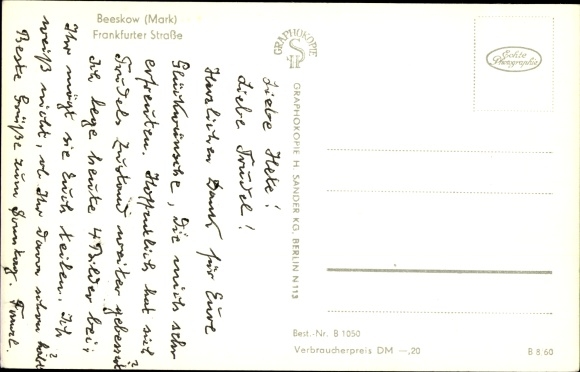 Beeskow (Mark)
Frankfurter Straße
GRAPHOKOPIE
GRAPHOKOPIE H. SANDER KG, BERLIN N 113
Echte
Photographie
Liebe
Liebe Trudel!
Herzlichen Dank für Eure
Glückwünsche, die mich sehr
erfreuten. Hoffentlich hat sich
Trudels Zustand weiter gebessert?
Ich lege heute 4 Bilder bei,
Ihr mögt sie Euch teilen. Ich
weiß nicht, ob Ihr davon schon habt?
Beste Grüße zum Sonntag.
Best.-Nr. B 1050
Verbraucherpreis DM —,20
B 8.60